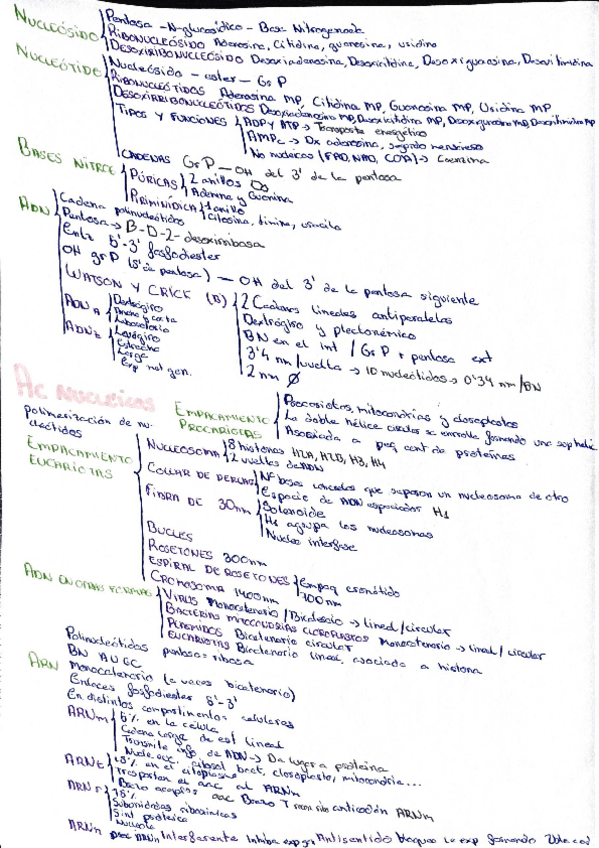 NUCLEÓSIDO Pentosa - N-glucosídico - Base Nitrogenada
RIBONUCLEÓSIDO Adenosina, Citidina, guanosina, uridina
DESOXIRIBONUCLEÓSIDO Desoxiadenosina, Desoxicitidina, Desoxiguanosina, Desoxitimidina
NUCLEÓTIDO Nucleósido - ester - Gr P
RIBONUCLEÓTIDOS Adenosina MP, Citidina MP, Guanosina MP, Uridina MP
DESOXIRRIBONUCLEÓTIDOS Desoxiadenosina MP, Desoxicitidina MP, Desoxiguanosina MP, Desoxitimidina MP
TIPOS Y FUNCIONES ADP y ATP → Transporte energético
AMPc → segundo mensajero
No nucleicos (FAD, NAD, COA) → Coenzima
CADENAS Gr P - OH del 3' de la pentosa
BASES NITROG PÚRICAS 2 anillos
Adenina y Guanina
PIRIMINÍDICA 1 anillo
Citosina, timina, uracilo
ADN Cadena polinucleótidos
Pentosa → B-D-2-desoxirribosa
Enlz 5'-3' fosfodiester
OH gr P (5' de pentosa) - OH del 3' de la pentosa siguiente
WATSON Y CRICK (B) 2 Cadenas lineales antiparalelas
Dextrógiro y plectonémico
BN en el int / Gr P + pentosa ext
3'4 nm/vuelta → 10 nucleótidos → 0'34 nm/BN
2 nm Ø
ADN A Dextrógiro
Ancho y corto
Laboratorio
ADN Z Levógiro
Estrecho
Largo
Exp mat gen.
Ac Nucleicos
Polimerización de nucleótidos
EMPACAMIENTO PROCARIOTAS Procariotas, mitocondrias y cloroplastos
La doble hélice circular se enrolla formando una superhelic
Asociada a peq cant de proteínas
EMPACAMIENTO EUCARIOTAS NUCLEOSOMA 8 histonas H2A, H2B, H3, H4
2 vueltas de ADN
COLLAR DE PERLAS Nº bases que separan un nucleosoma de otro
Espacio de ADN espaciador H1
FIBRA DE 30nm Solenoide
H1 agrupa los nucleosomas
Nucleo interfase
BUCLES
ROSETONES 300nm
ESPIRAL DE ROSETONES Empaq cromátida
700nm
CROMOSOMA 1400nm
ADN EN OTRAS FORMAS VIRUS Monocatenario / Bicatenario → lineal / circular
BACTERIAS MITOCONDRIAS CLOROPLASTOS Monocatenario → lineal / circular
PLASMIDOS Bicatenario circular
EUCARIOTAS Bicatenario lineal, asociado a histona
ARN Polinucleótidos pentosa = ribosa
BN AUGC
Monocatenario (a veces bicatenario)
Enlaces fosfodiester 5'-3'
En distintos compartimentos celulares
ARNm 5% en la célula
Cadena larga de est lineal
Transmite info de ADN → Da lugar a proteína
Nucleo euc, citosol bact, cloroplasto, mitocondria...
ARNt 15% en el citoplasma
Trasportan el aac al ARNm
Brazo aceptor aac Brazo T ribs anticodón ARNm
ARNr 75%
Subunidades ribosómicas
Sint proteica
Nucleolo
ARNn ARNi Interferente Inhibe exp gr Antisentido bloquea la exp formando